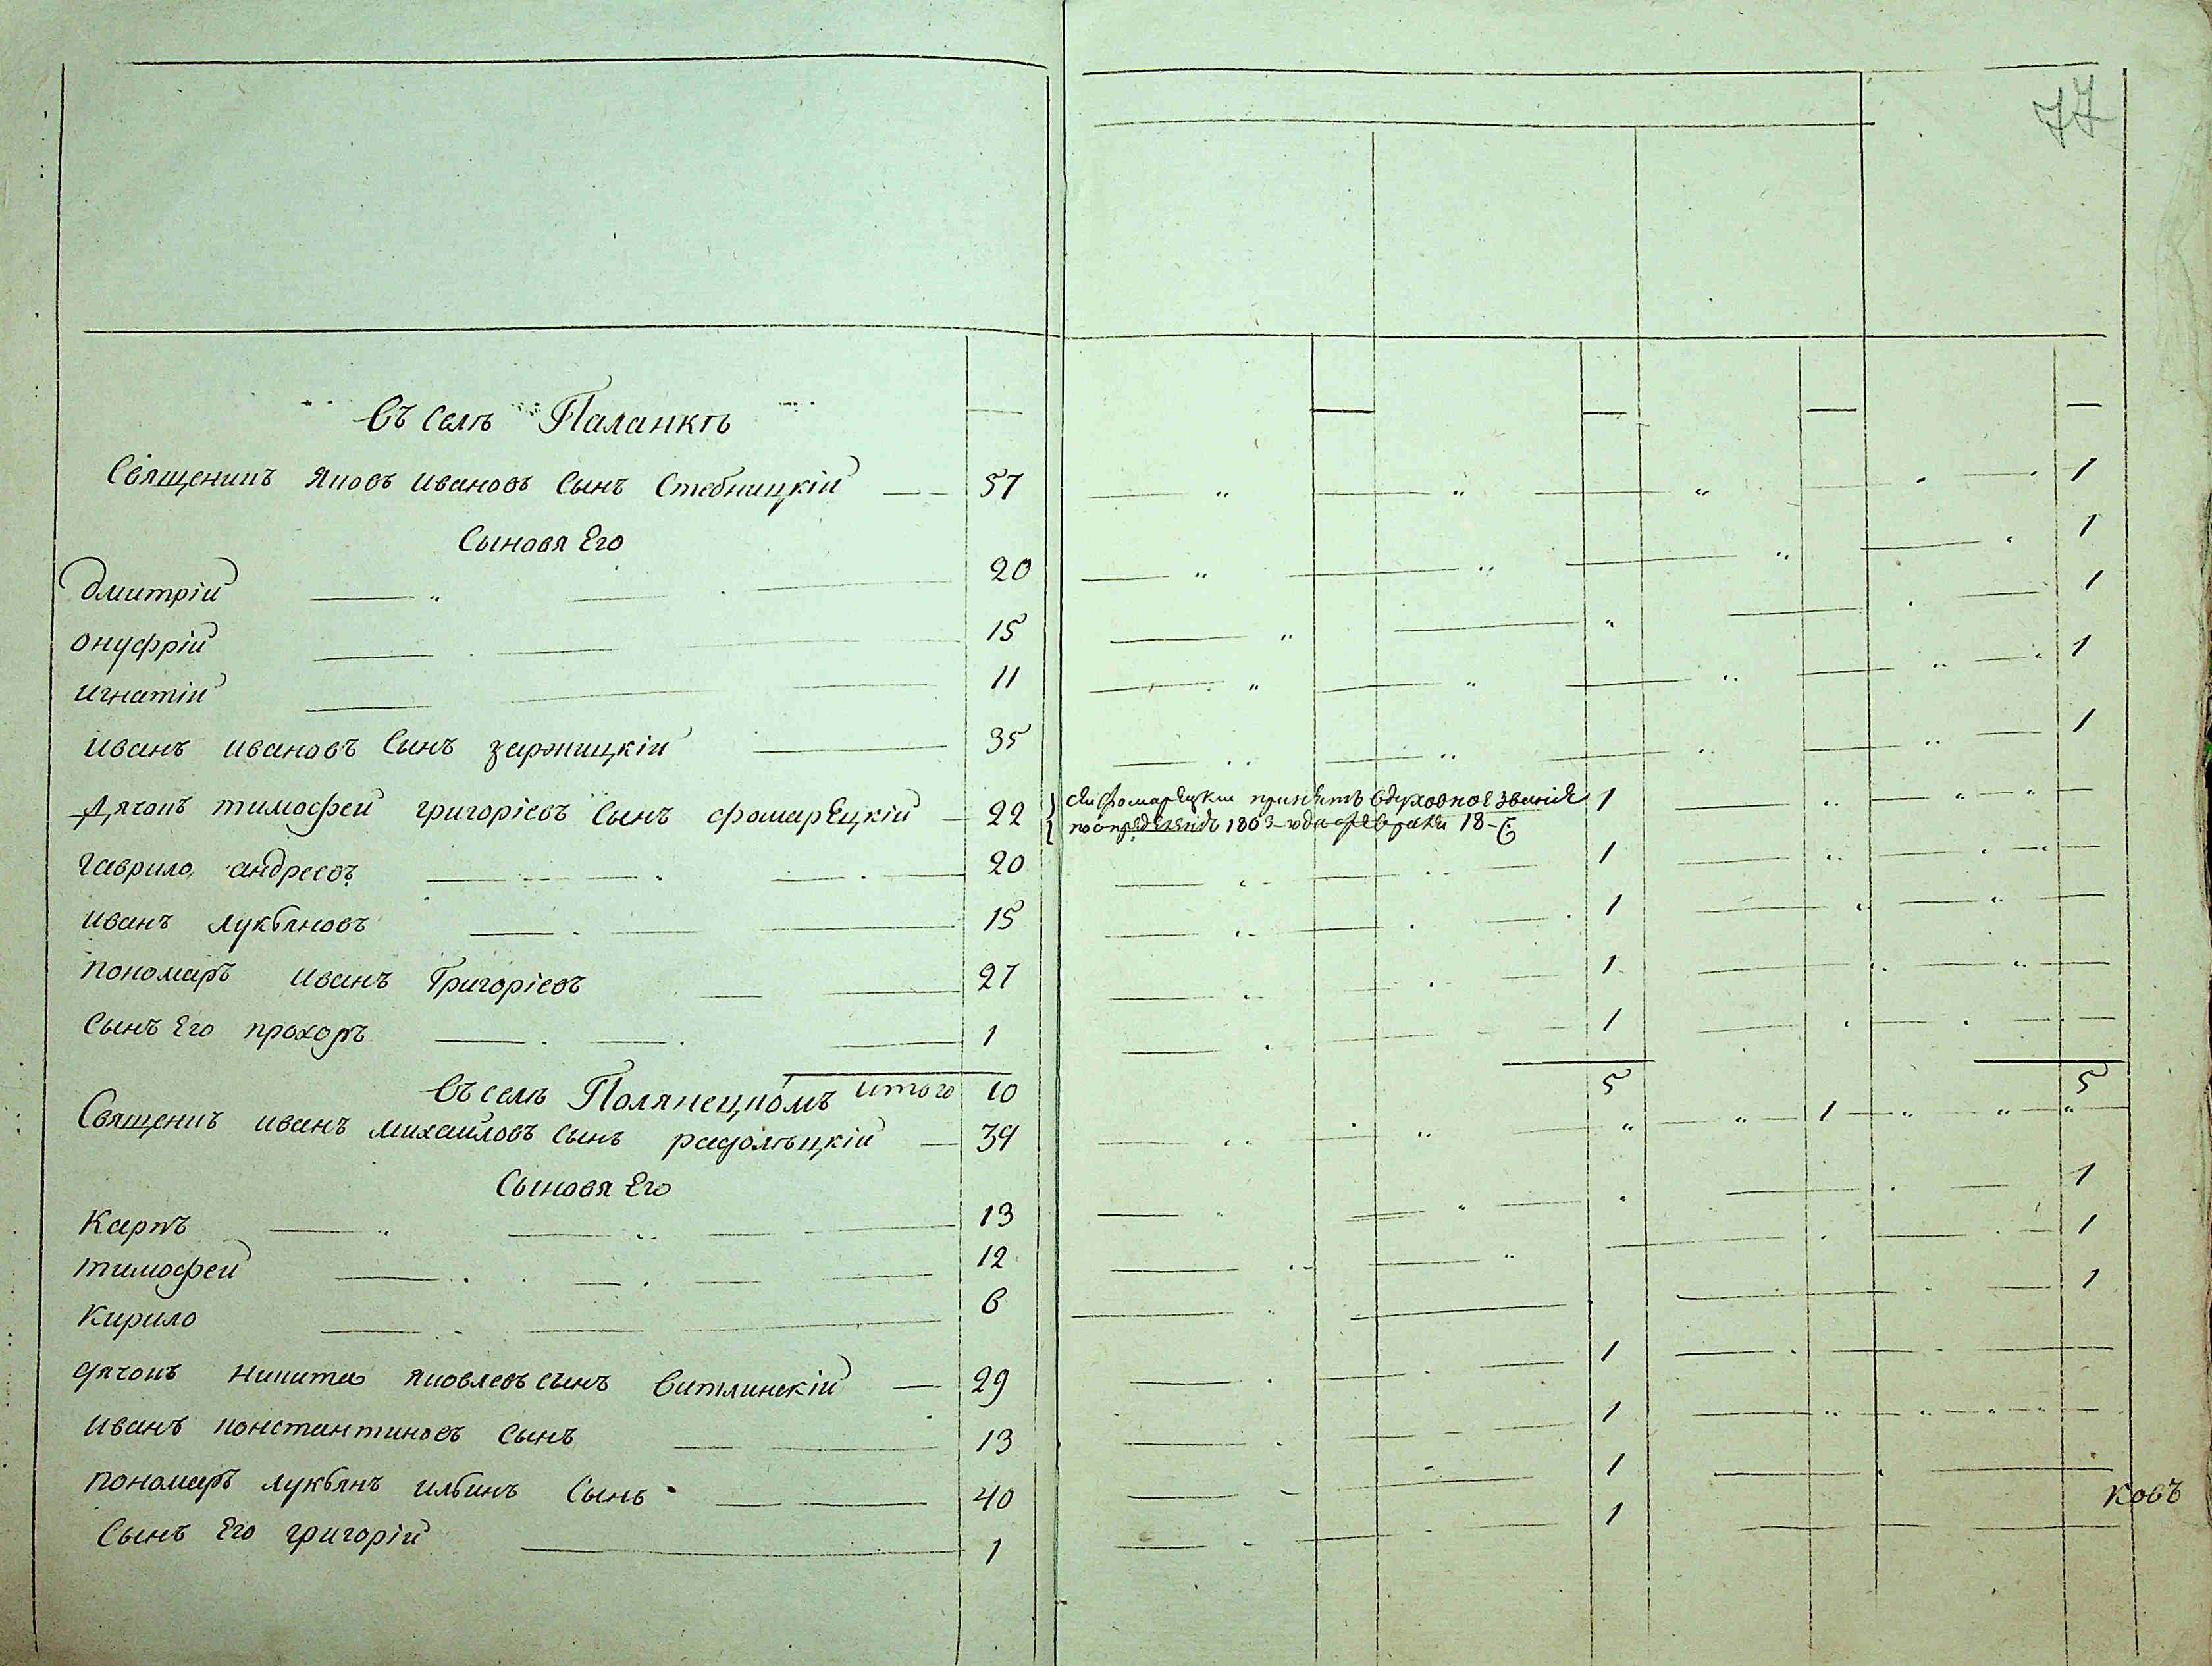 77
Въ селѣ Паланкѣ
Священикъ Яковъ Ивановъ Сынъ Стебницкій 57 " " " 1
Сыновя Его
Дмитрій 20 " " " 1
Онуфрій 15 " " 1
Игнатій 11 " " " 1
Иванъ Ивановъ Сынъ Заржицкій 35 1
Дячокъ тимофей григоріевъ Сынъ фомарЕцкій 22 1
сей фомарЕцкій принятъ вдуховноЕ званіЕ
поопредЕленію 1803-года февраля 18-г
гаврило андреевъ 20 1
иванъ лукьяновъ 15 1
пономаръ иванъ Григоріевъ 27 1
Сынъ Его прохоръ 1 1
итого 10 5 5
Въ селѣ Полянецкомъ
Священикъ иванъ михайловъ сынъ 39 1
Сыновя Его
Карпъ 13 1
тимофей 12 1
Кирило 6 1
дячокъ никита яковлевъ сынъ витлинскій 29 1
иванъ константиновъ Сынъ 13 1
пономаръ лукьянъ ильинъ Сынъ 40 1
Сынъ Его григорій 1 1
ковъ